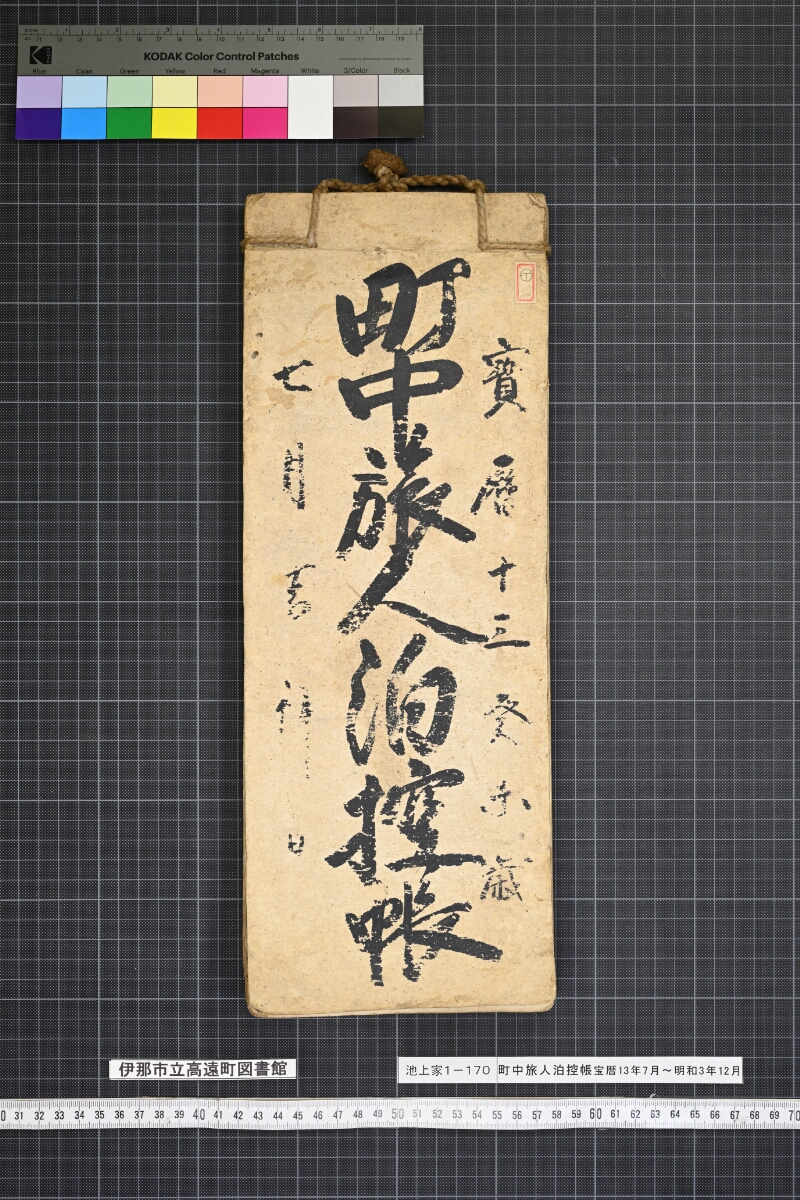 KODAK Color Control Patches
Blue Cyan Green Yellow Red Magenta White 3/Color Black
寶暦十三癸未歳
町中旅人泊控帳
七月吉祥日
伊那市立高遠町図書館
池上家1－170 町中旅人泊控帳宝暦13年7月～明和3年12月
31 32 33 34 35 36 37 38 39 40 41 42 43 44 45 46 47 48 49 50 51 52 53 54 55 56 57 58 59 60 61 62 63 64 65 66 67 68 69 70